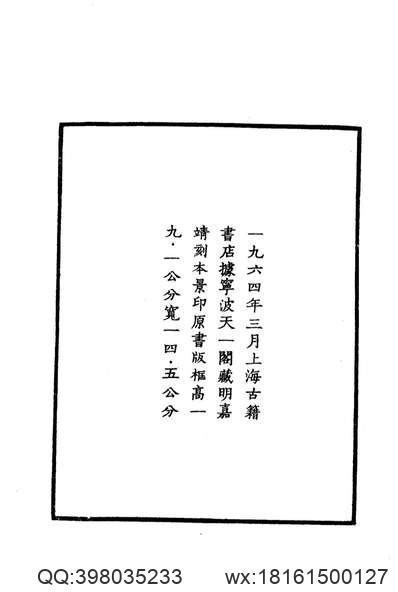 一九六四年三月上海古籍
書店據寧波天一閣藏明嘉
靖刻本景印原書版框高一
九·一公分寬一四·五公分
QQ:398035233 wx:18161500127